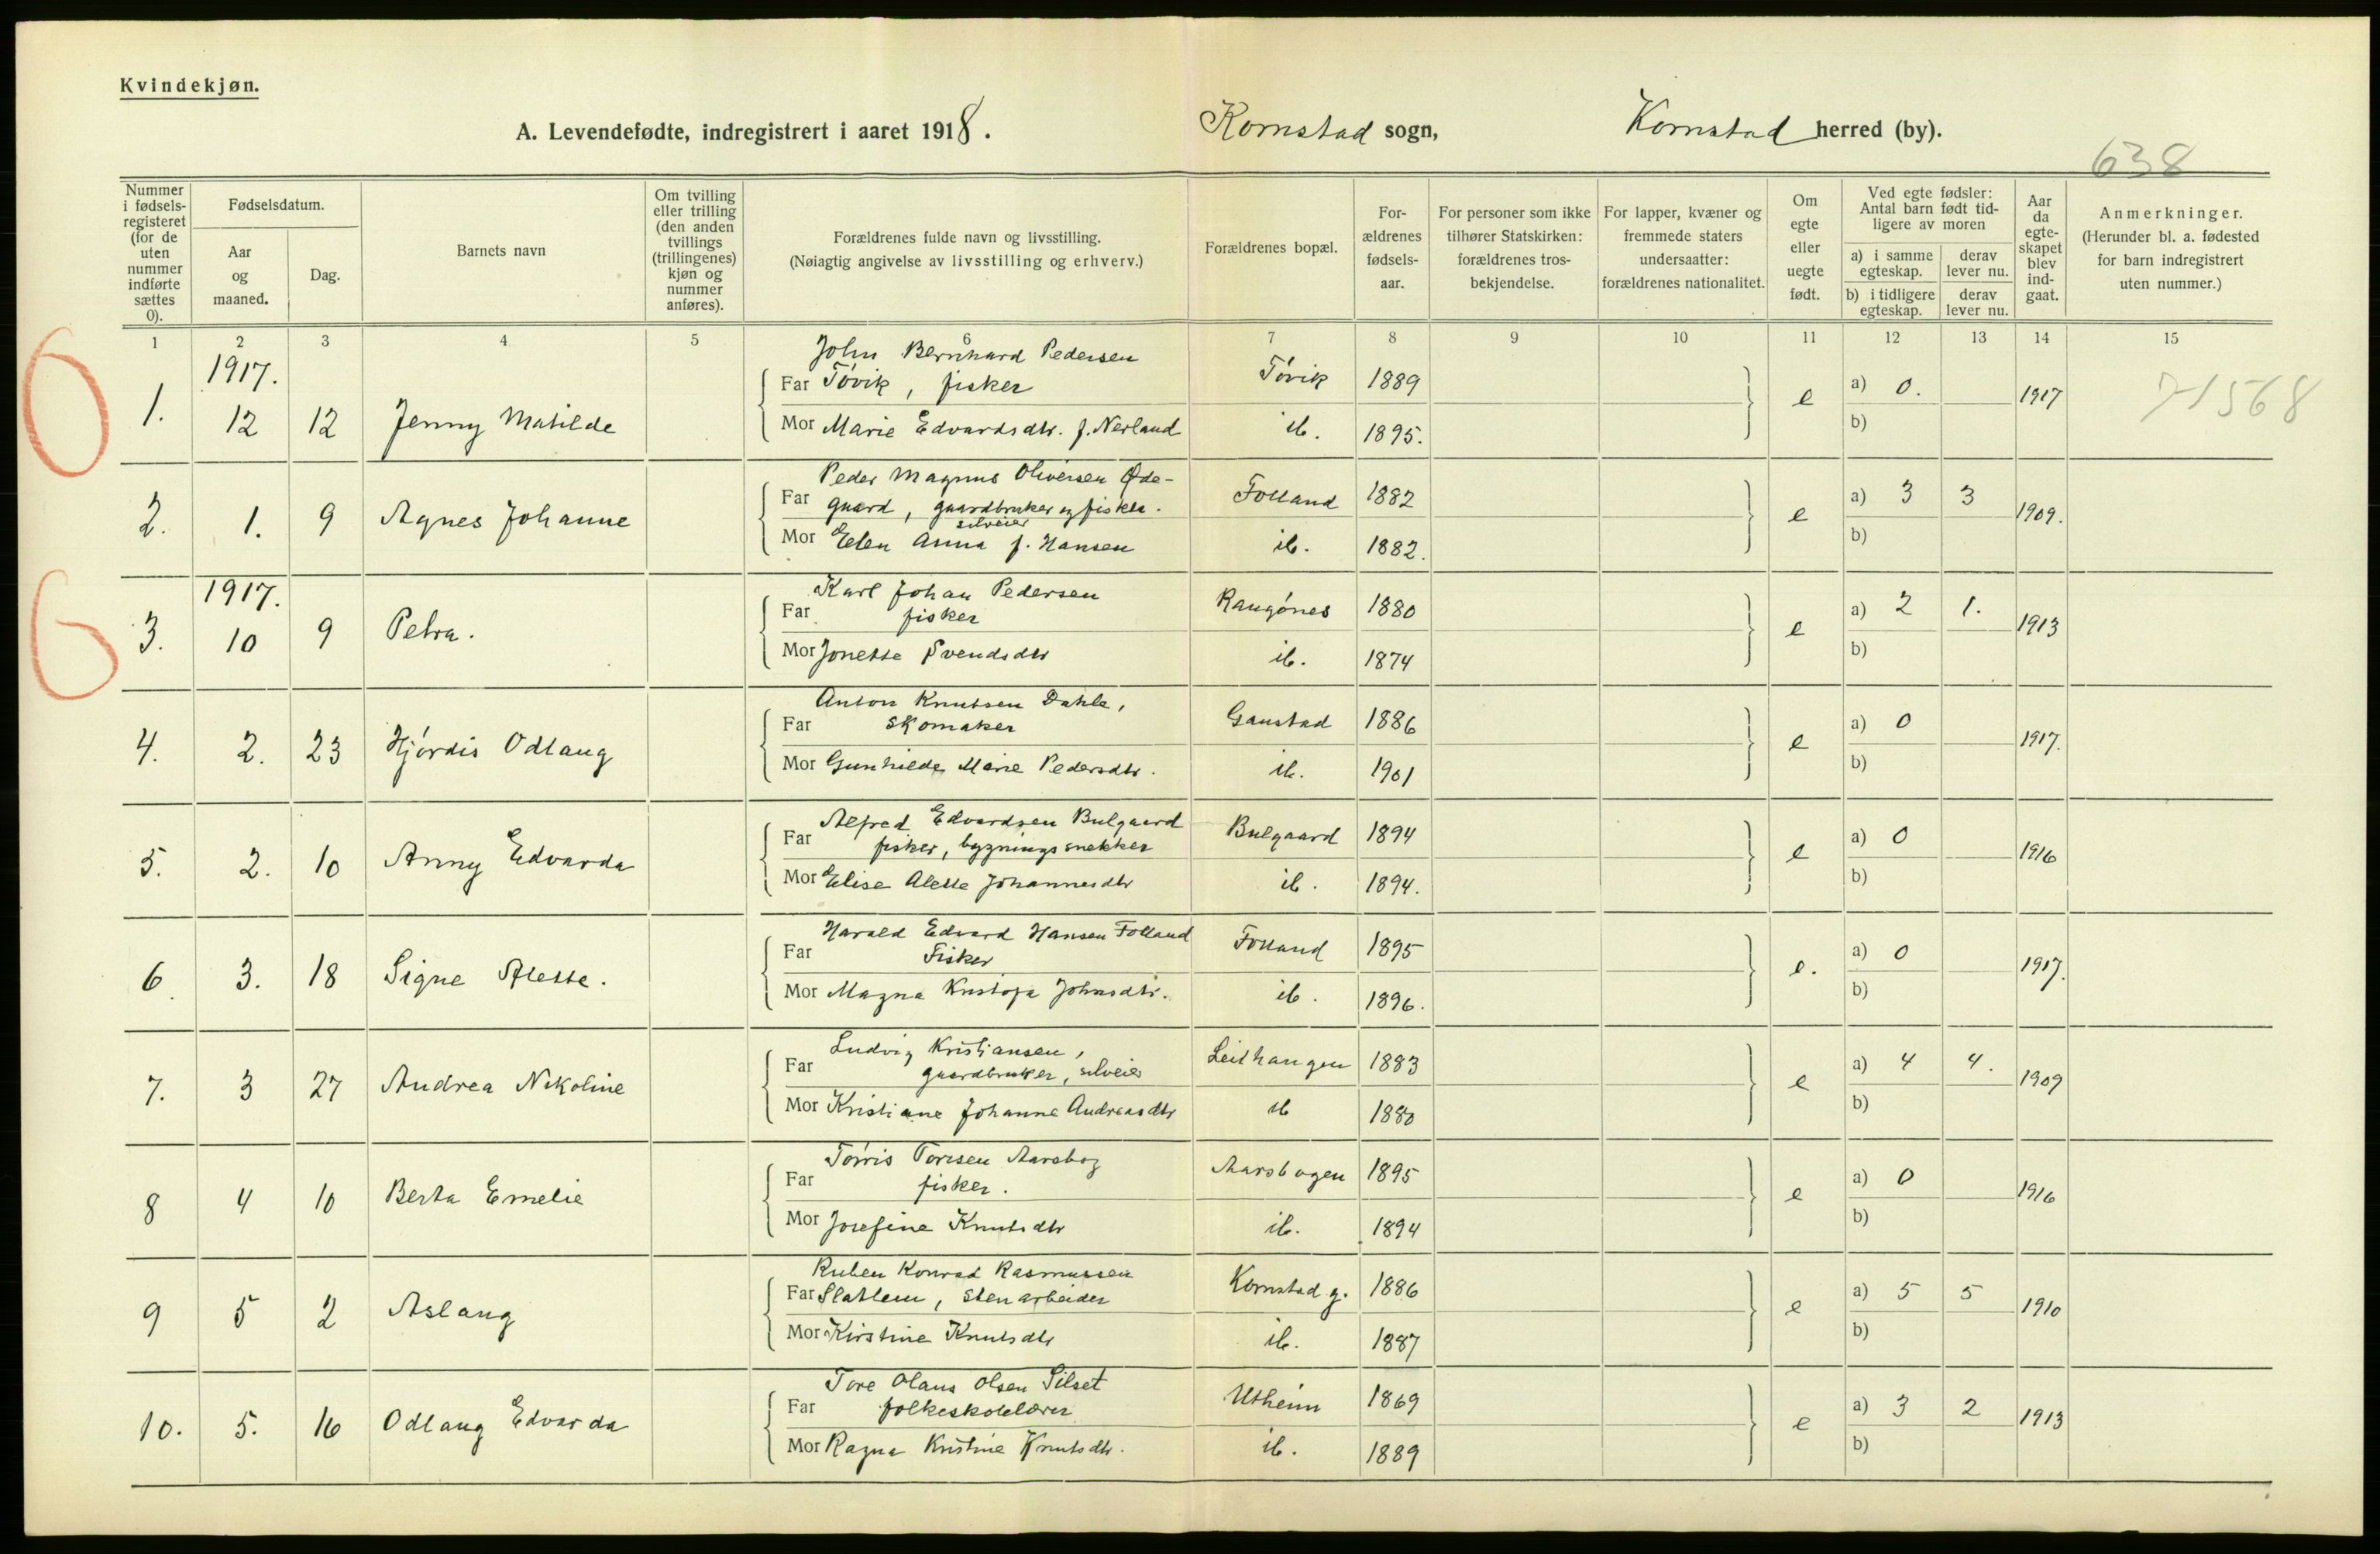 Kvindekjøn.
A. Levendefødte, indregistrert i aaret 1918.
Kornstad sogn,
Kornstad herred (by).
638
Nummer i fødsels-registeret (for de uten nummer indførte sættes 0).
Fødselsdatum.
Aar og maaned.
Dag.
Barnets navn
Om tvilling eller trilling (den anden tvillings (trillingenes) kjøn og nummer anføres).
Forældrenes fulde navn og livsstilling.
(Nøiagtig angivelse av livsstilling og erhverv.)
Forældrenes bopæl.
For-ældrenes fødsels-aar.
For personer som ikke tilhører Statskirken: forældrenes tros-bekjendelse.
For lapper, kvæner og fremmede staters undersaatter: forældrenes nationalitet.
Om egte eller uegte født.
Ved egte fødsler: Antal barn født tid-ligere av moren
a) i samme egteskap.
derav lever nu.
b) i tidligere egteskap.
derav lever nu.
Aar da egte-skapet blev ind-gaat.
Anmerkninger.
(Herunder bl. a. fødested for barn indregistrert uten nummer.)
1 2 3 4 5 6 7 8 9 10 11 12 13 14 15
1917.
John Bernhard Pedersen
Far Tóvik, fisker Tóvik 1889
1. 12 12 Jenny Matilde e a) 0. 1917 71568
Mor Marie Edvardsdtr. f. Nerland ib. 1895. b)
Peder Magnus Oliversen Øde-
Far gaard, gaardbruker og fisker. Folland 1882
selveier
2. 1. 9 Agnes Johanne e a) 3 3 1909.
Mor Elen Anna f. Hansen ib. 1882. b)
1917.
Karl Johan Pedersen
Far fisker Raugónes 1880
3. 10 9 Petra. e a) 2 1. 1913
Mor Jonette Svendsdtr ib. 1874 b)
Anton Knutsen Dahle,
Far skomaker Gaustad 1886
4. 2. 23 Hjórdis Odlaug e a) 0 1917.
Mor Gunhilde Marie Pedersdtr. ib. 1901 b)
Alfred Edvardsen Bulgaard
Far fisker, bygningssnekker Bulgaard 1894
5. 2. 10 Anny Edvarda e a) 0 1916
Mor Elise Alette Johannesdtr ib. 1894. b)
Harald Edvard Hansen Folland
Far Fisker Folland 1895
6. 3. 18 Signe Alette. e. a) 0 1917.
Mor Magna Kristofa Johnsdtr. ib. 1896. b)
Ludvig Kristiansen,
Far gaardbruker, selveier Leithaugen 1883
7. 3 27 Andrea Nikoline e a) 4 4. 1909
Mor Kristiane Johanne Andreasdtr ib 1880 b)
Tórris Torresen Aarsbog
Far fisker. Aarsbogen 1895
8 4 10 Berta Emelie e a) 0 1916
Mor Josefine Knutsdtr ib. 1894 b)
Ruben Konrad Rasmussen
Far Slatlem, stenarbeider Kornstad g. 1886
9 5 2 Aslaug e a) 5 5 1910
Mor Kirstine Knutsdtr ib. 1887 b)
Tore Olaus Olsen Silset
Far folkeskolelærer Utheim 1869
10. 5. 16 Odlaug Edvarda e a) 3 2 1913
Mor Ragna Kristine Knutsdtr. ib. 1889 b)